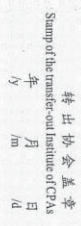 转出协会盖章
Stamp of the transfer-out Institute of CPAs
年 月 日
/y /m /d